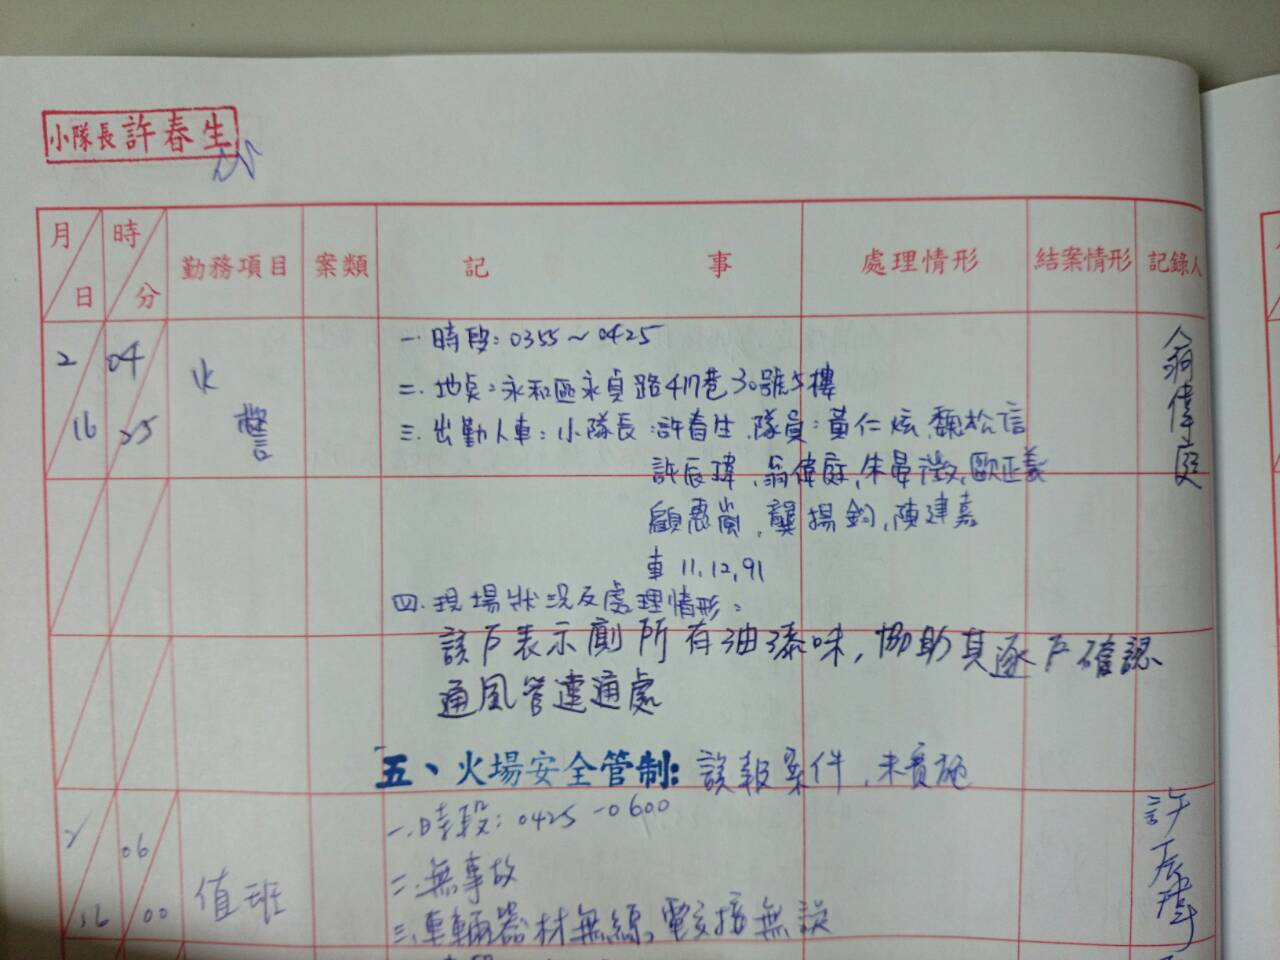 小隊長許春生
月 日 時 分 勤務項目 案類 記 事 處理情形 結案情形 記錄人
2 16 04 25 火警
一.時段:0355~0425
二.地點:永和區永貞路417巷30號5樓
三.出勤人車:小隊長:許春生.隊員:黃仁炫.魏松信
許辰瑋.翁偉庭.朱晏徵.歐正義
顧惠賞.龔揚鈞.陳建嘉
車11.12.91
翁偉庭
四.現場狀況及處理情形:
該戶表示廁所有油漆味,協助其逐戶確認
通風管連通處
五、火場安全管制:誤報案件,未實施
2 16 06 00 值班
一.時段:0425-0600
二.無事故
三.車輛器材無線電交接無誤
許辰瑋